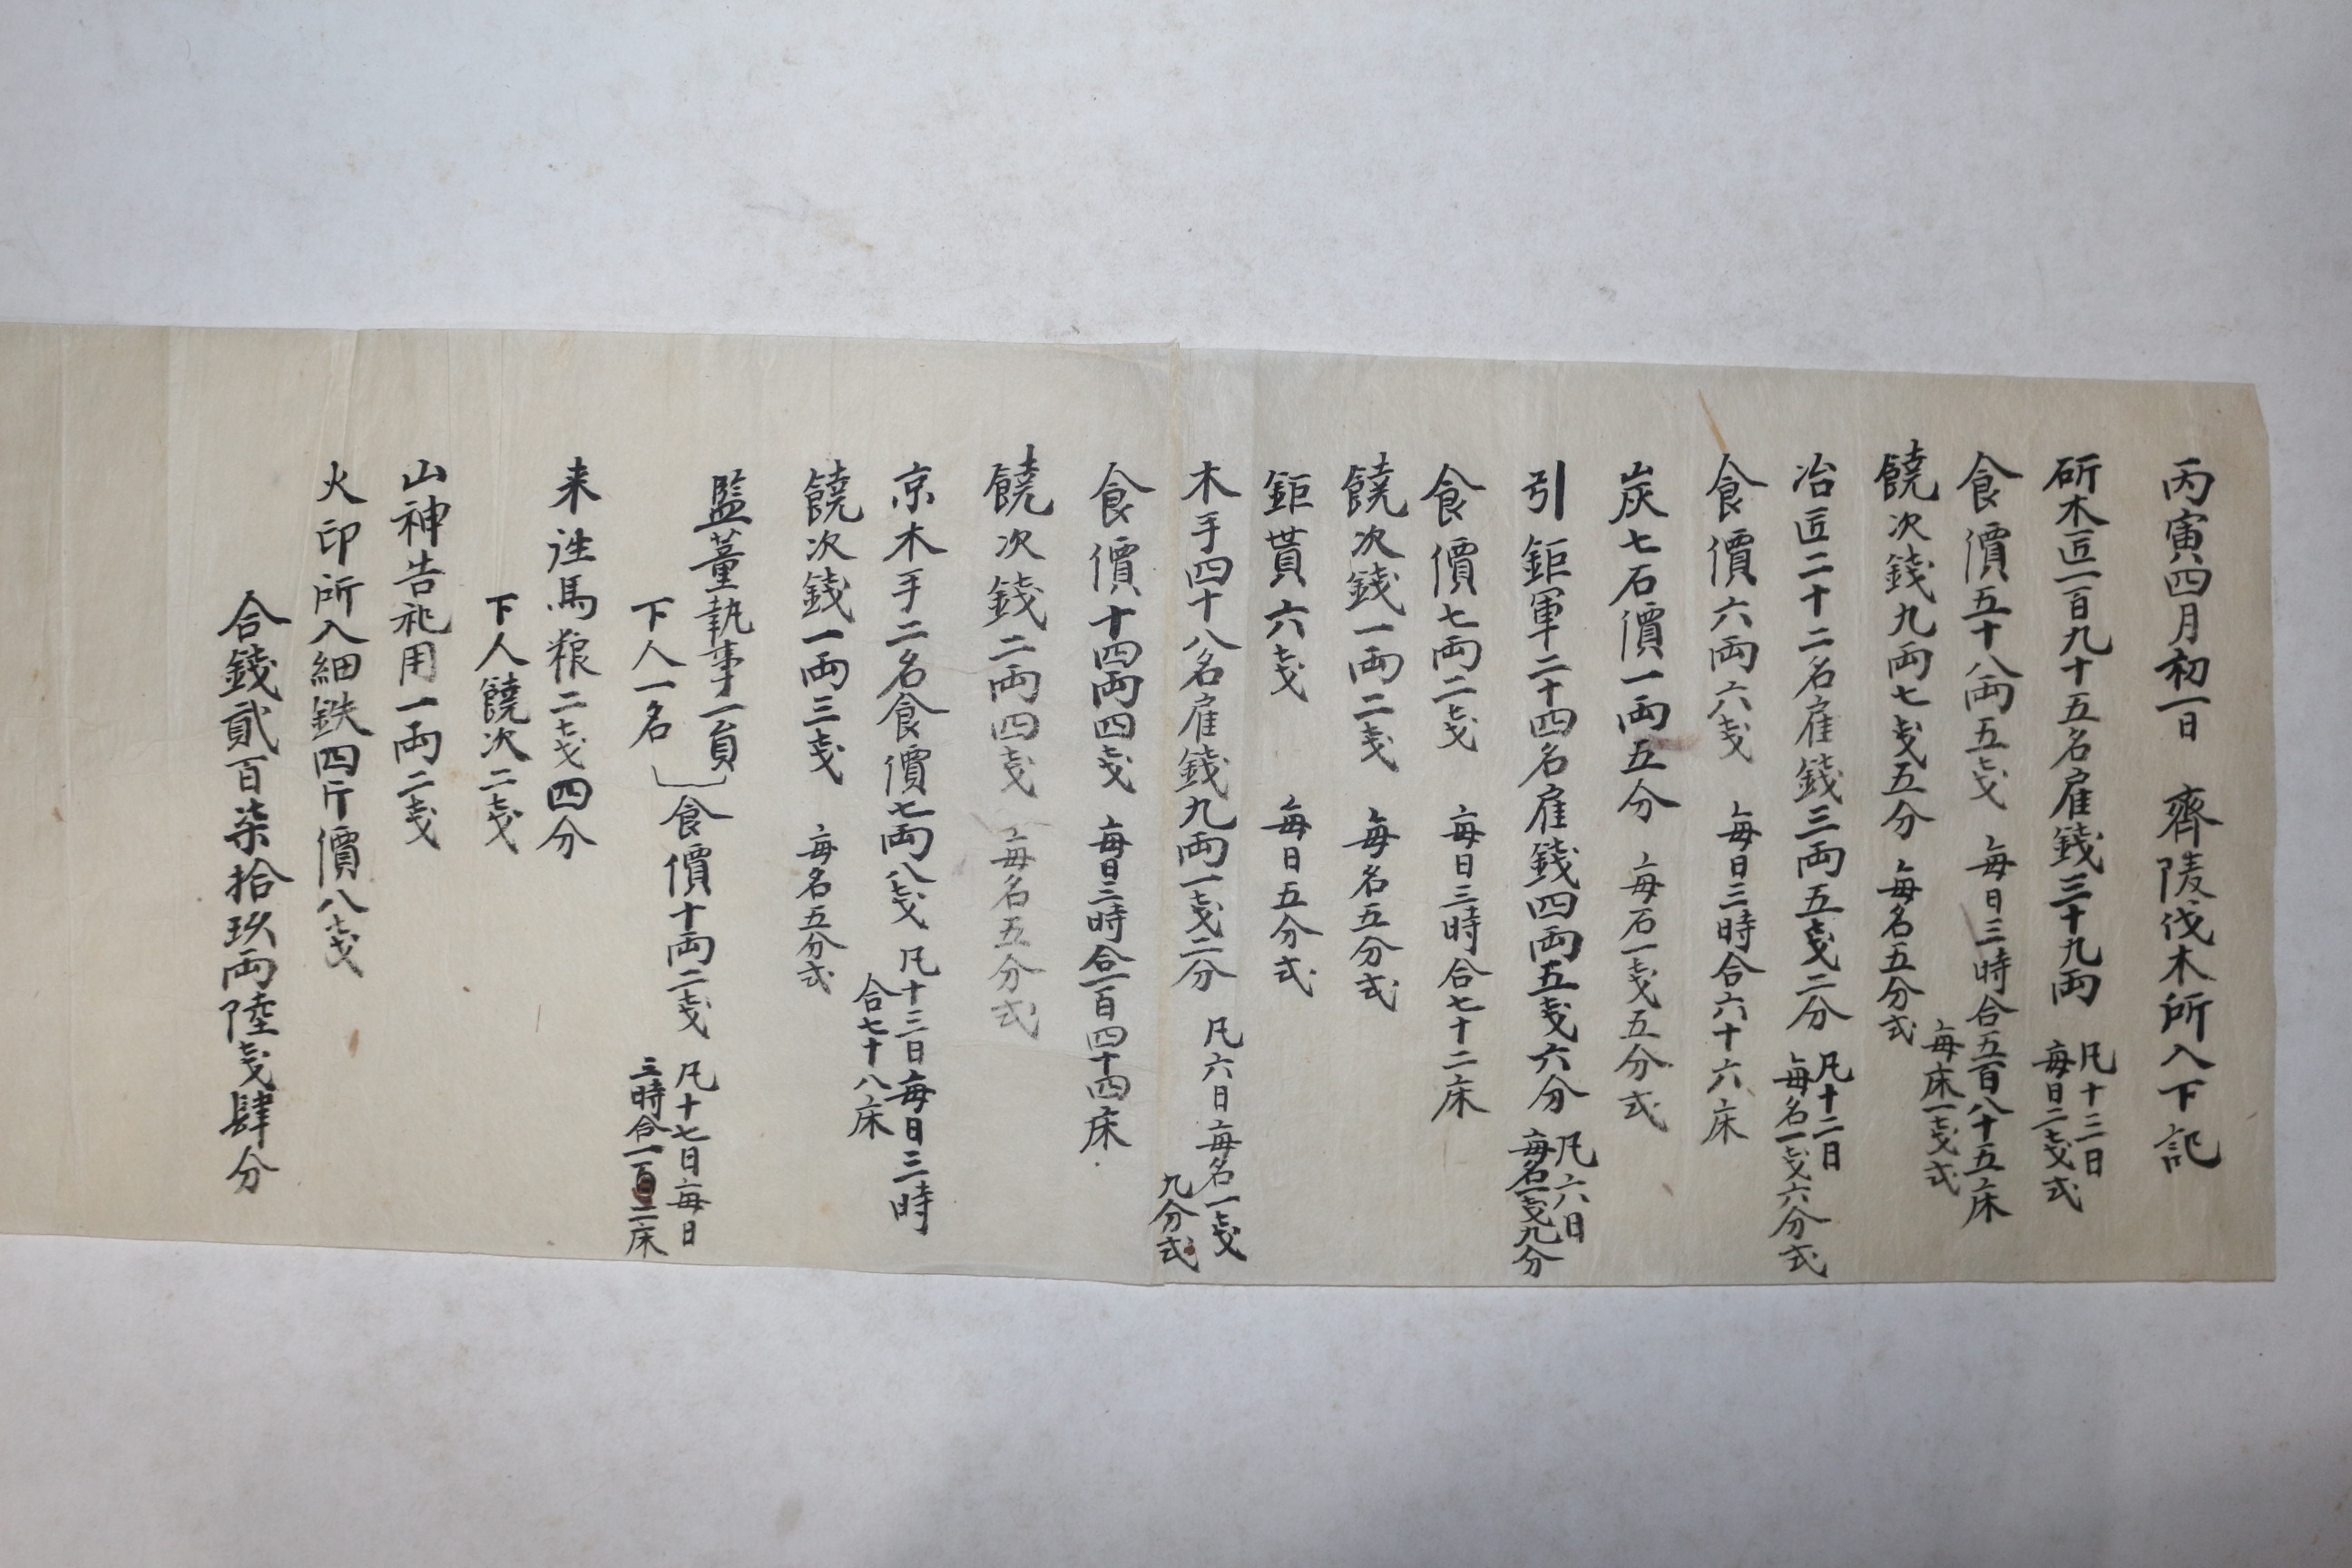 丙寅四月初一日 齊陵伐木所入下記
斫木匠一百九十五名雇錢三十九両 凡十三日
每日二戔式
食價五十八両五戔 每日三時合五百八十五床
每床一戔式
饒次錢九両七戔五分 每名五分式
冶匠二十二名雇錢三両五戔二分 凡十二日
每名一戔六分式
食價六両六戔 每日三時合六十六床
炭七石價一両五分 每石一戔五分式
引鉅軍二十四名雇錢四両五戔六分 凡六日
每名一戔九分
食價七両二戔 每日三時合七十二床
饒次錢一両二戔 每名五分式
鉅貰六戔 每日五分式
木手四十八名雇錢九両一戔二分 凡六日每名一戔
九分式
食價十四両四戔 每日三時合一百四十四床
饒次錢二両四戔 每名五分式
京木手二名食價七両八戔 凡十三日每日三時
合七十八床
饒次錢一両三戔 每名五分式
監董執事一員
下人一名
食價十両二戔 凡十七日每日
三時合一百二床
来往馬粮二戔四分
下人饒次二戔
山神告祀用一両二戔
火印所入細鉄四斤價八戔
合錢貳百柒拾玖両陸戔肆分